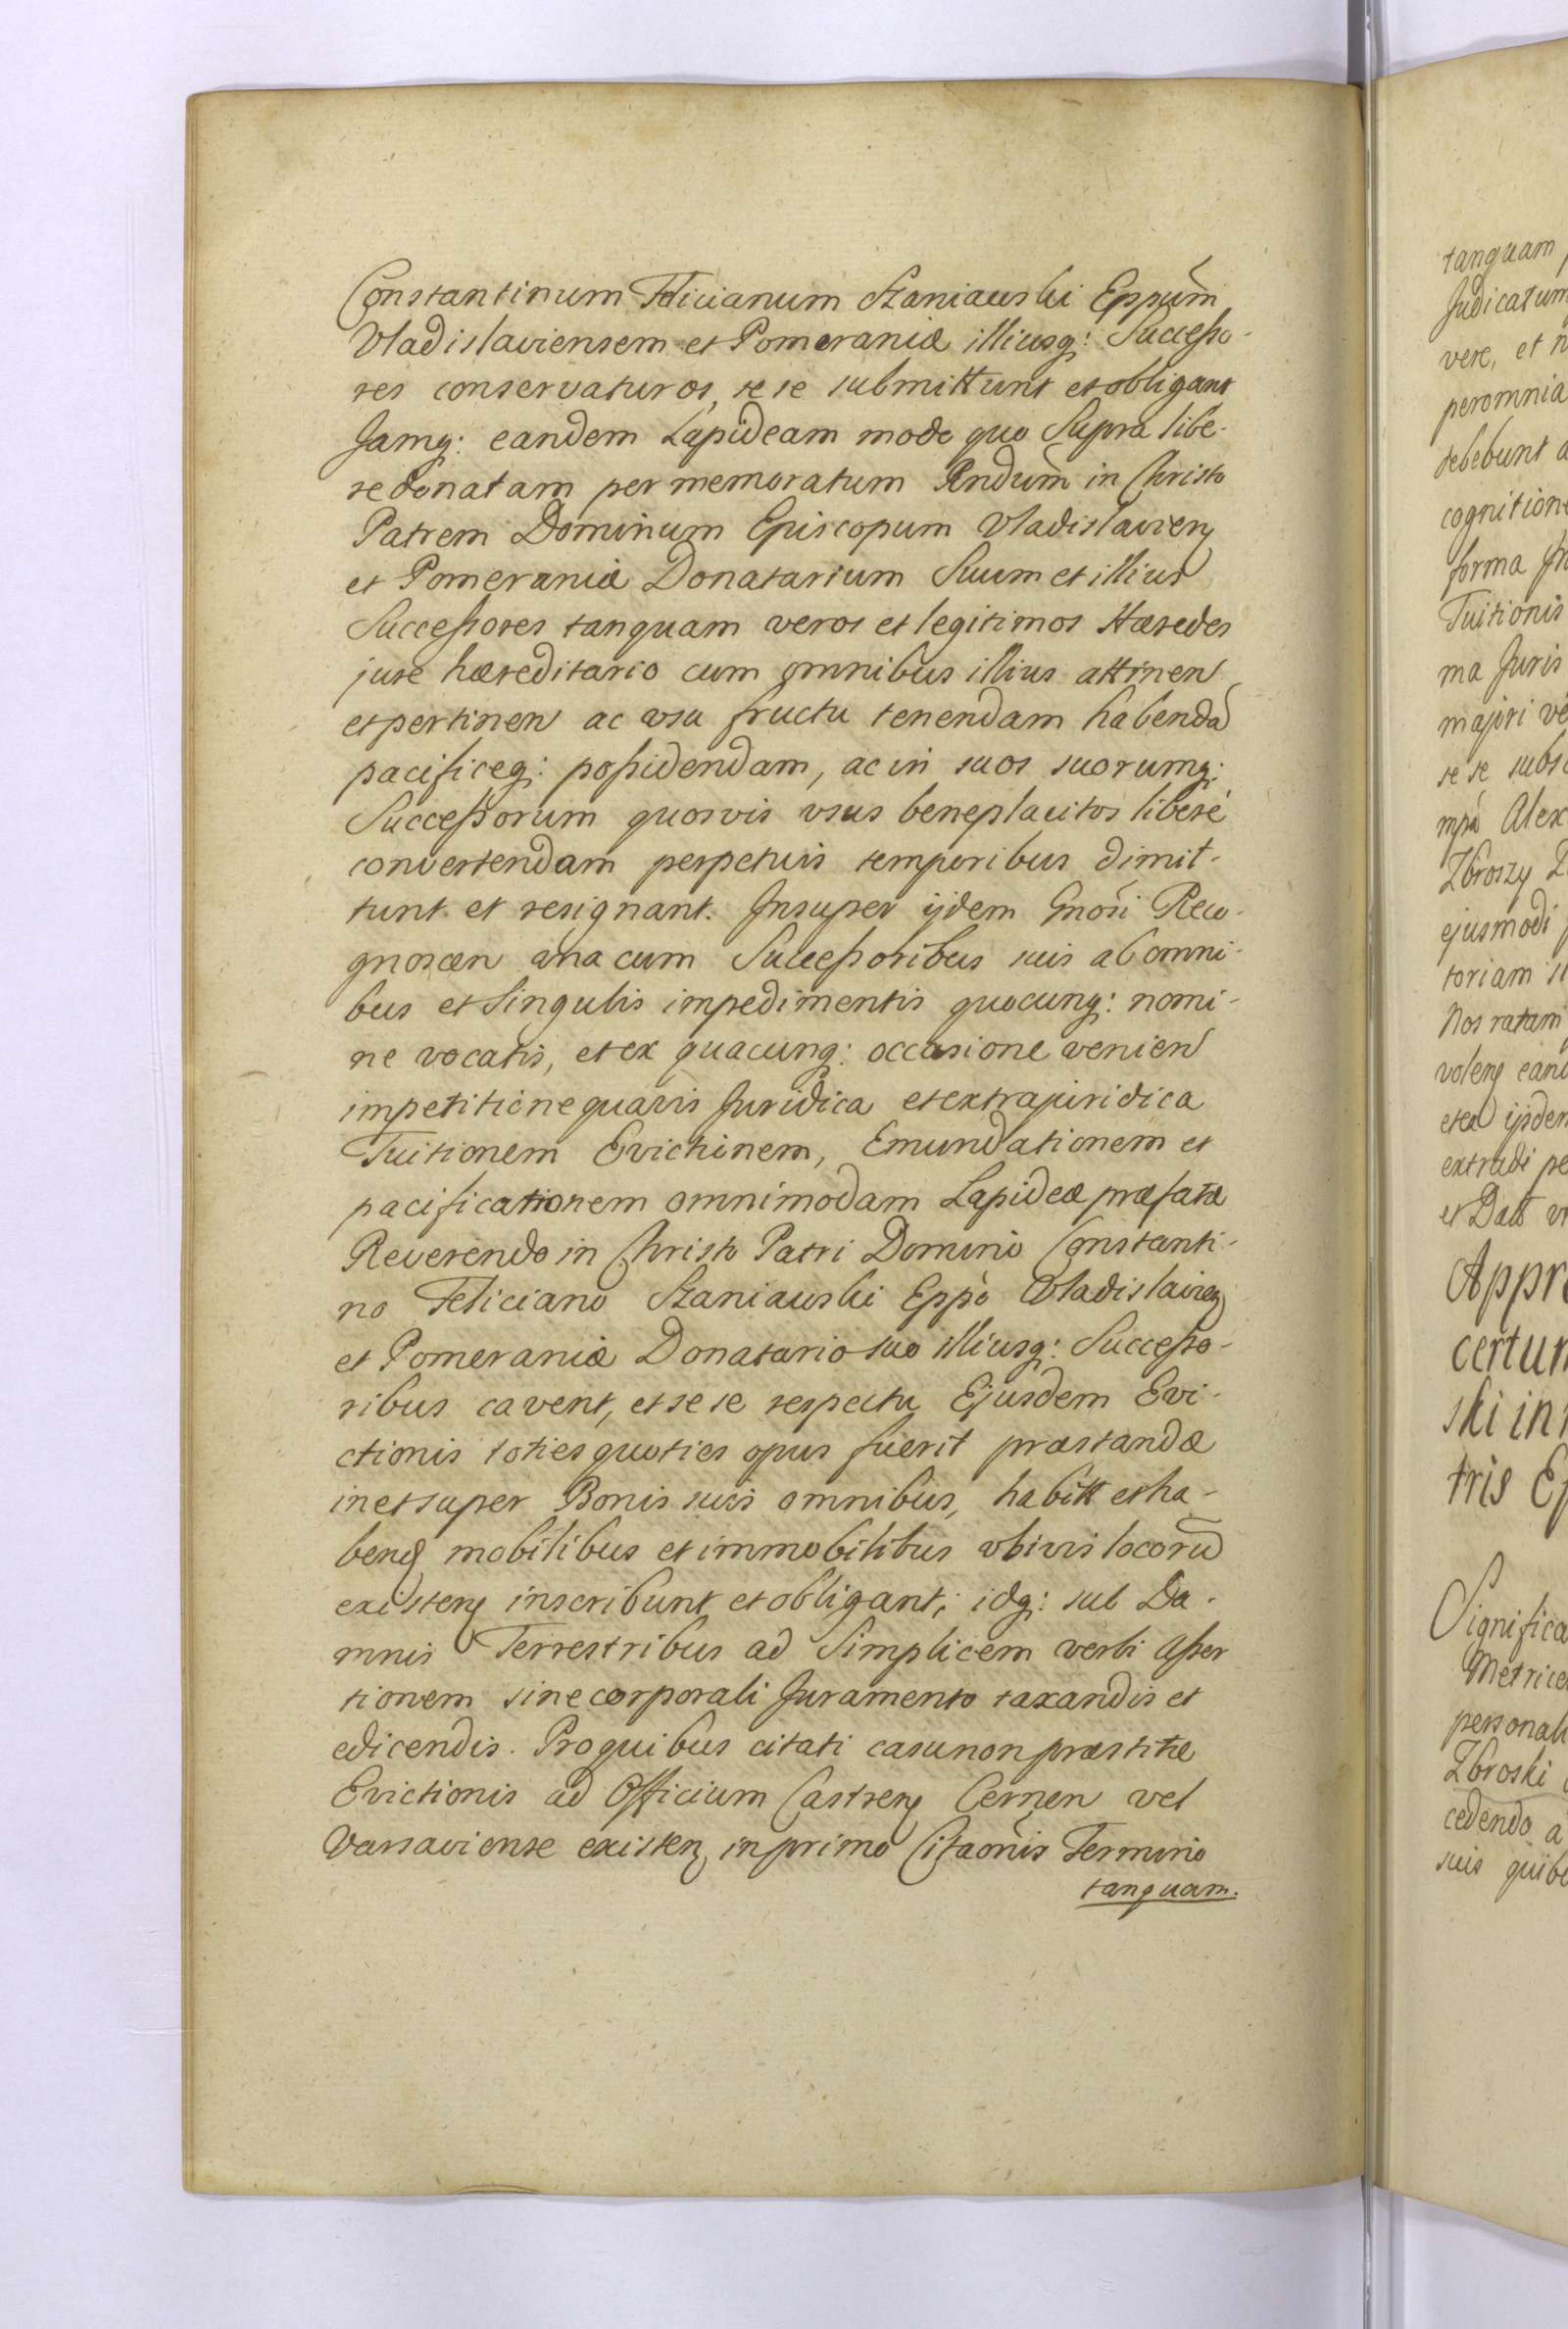 Constantinum Felicianum Szaniawski Eppũm
Vladislaviensem et Pomeraniæ illiusq: Successo-
res conservaturos, se se submittunt et obligant
Jamq: eandem Lapideam modo quo Supra libe-
re donatam per memoratum Rndum̃ in Christo
Patrem Dominum Episcopum Vladislavien
et Pomeraniæ Donatarium Suum et illius
Successores tanquam veros et legitimos Hæredes
jure hæreditario cum omnibus illius attinen
et pertinen ac usu fructu tenendam habendã
pacificeq: possidendam, ac in suos suorumq:
Successorum quosvis usus beneplacitos liberè
convertendam perpetuis temporibus dimit-
tunt et resignant. Insuper ijdem Gnosi Reco-
gnoscen una cum Successoribus suis ab omni-
bus et Singulis impedimentis quocunq: nomi-
ne vocatis, et ex quacunq: occasione venien
impetitione quavis Juridica et extrajuridica
Tuitionem Evictinem, Emundationem et
pacificationem omnimodam Lapideæ præfatæ
Reverendo in Christo Patri Domino Constanti-
no Feliciano Szaniawski Eppo Vladislavien
et Pomeraniæ Donatario suo illiusq: Successo-
ribus cavent, et se se respectu Ejusdem Evi-
ctionis toties quoties opus fuerit præstandæ
in et super Bonis suis omnibus, habitt et ha-
ben mobilibus et immobilibus ubivis locorũ
existen inscribunt et obligant; idq: sub Da-
mnis Terrestribus ad Simplicem verbi Asser
tionem sine corporali Juramento taxandis et
edicendis. Pro quibus citati casu non præstitæ
Evictionis ad Officium Castren Cernen vel
Varsaviense existen in primo Citaonis Termino
tanquam.
tanquam
Judicatum
vere, et
peromnia
debebunt
cognitione
forma
Tuitionis
ma Juris
majori
se se
Zbroszy
ejusmodi
toriam
Nos ratam
volen
ijdem
extradi
et
Appr
certum
ski in
tris
Significa
Metrices
personali
Zbroski
cedendo a
suis